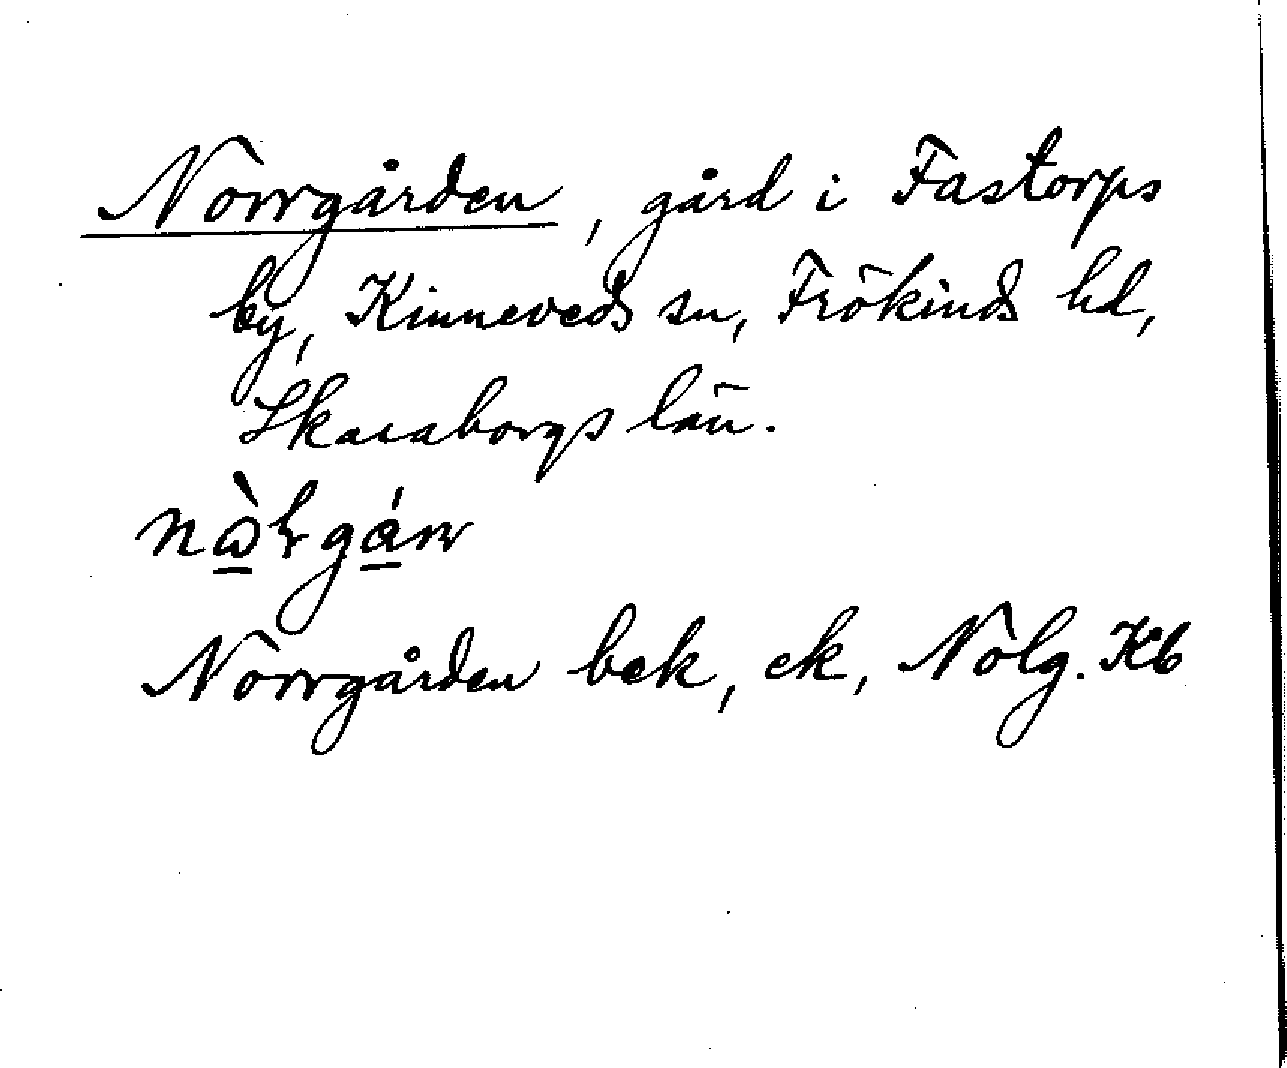 Norrgården, gård i Fastorps
by, Kinneveds sn, Frökinds hd,
Skaraborgs län.
Norrgården bek, ek, Nolg. Kb